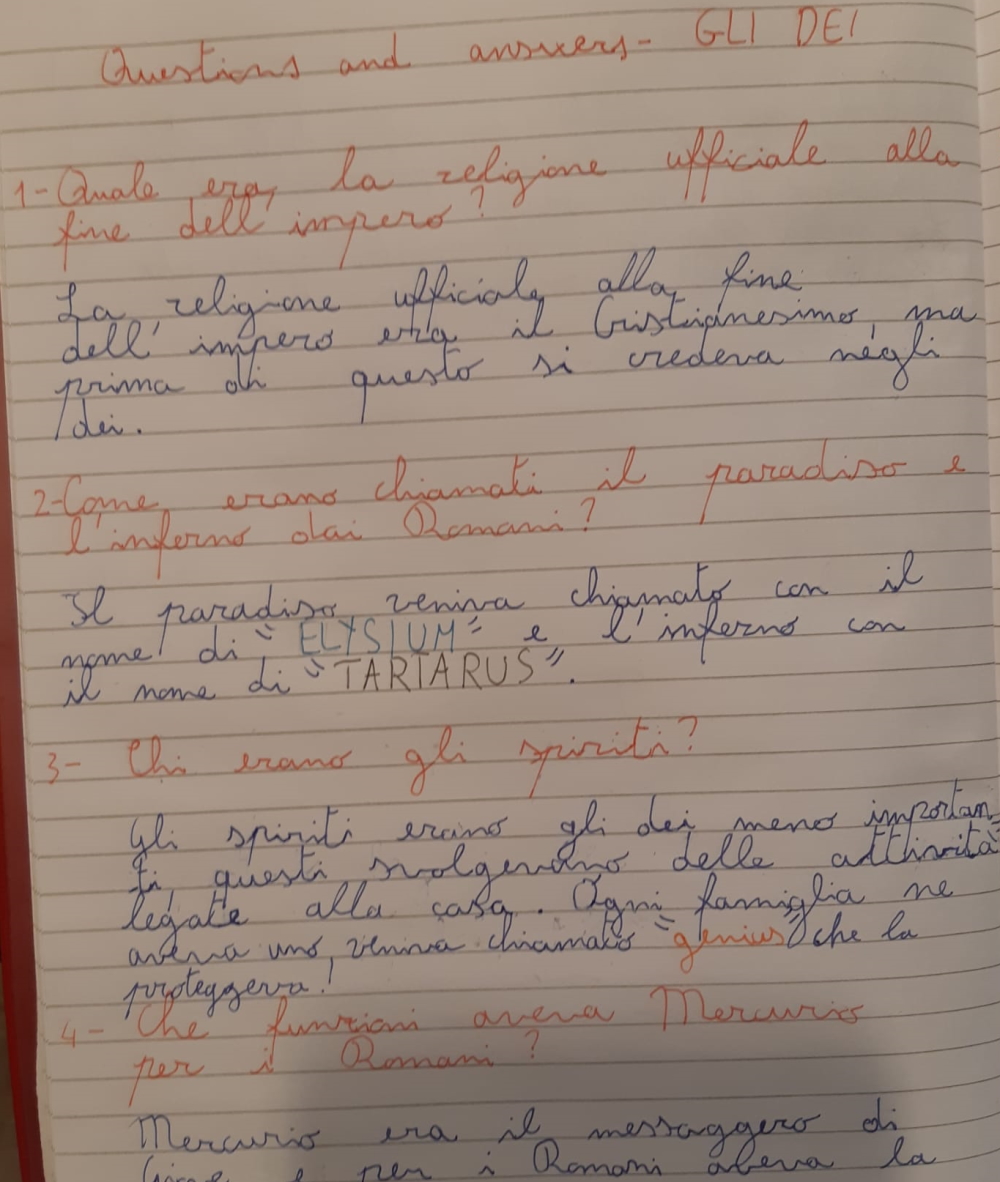 Questions and answers - GLI DEI
1- Quale era, la religione ufficiale alla
fine dell'impero?
La religione ufficiale alla fine
dell'impero era il Cristianesimo, ma
prima di questo si credeva negli
dei.
2- Come erano chiamati il paradiso e
l'inferno dai Romani?
Il paradiso veniva chiamato con il
nome di "ELYSIUM" e l'inferno con
il nome di "TARTARUS".
3- Chi erano gli spiriti?
Gli spiriti erano gli dei meno importan-
ti, questi svolgevano delle attività
legate alla casa. Ogni famiglia ne
aveva uno, veniva chiamato "genius" che la
proteggeva!
4- Che funzioni aveva Mercurio
per i Romani?
Mercurio era il messaggero di
e per i Romani aveva la